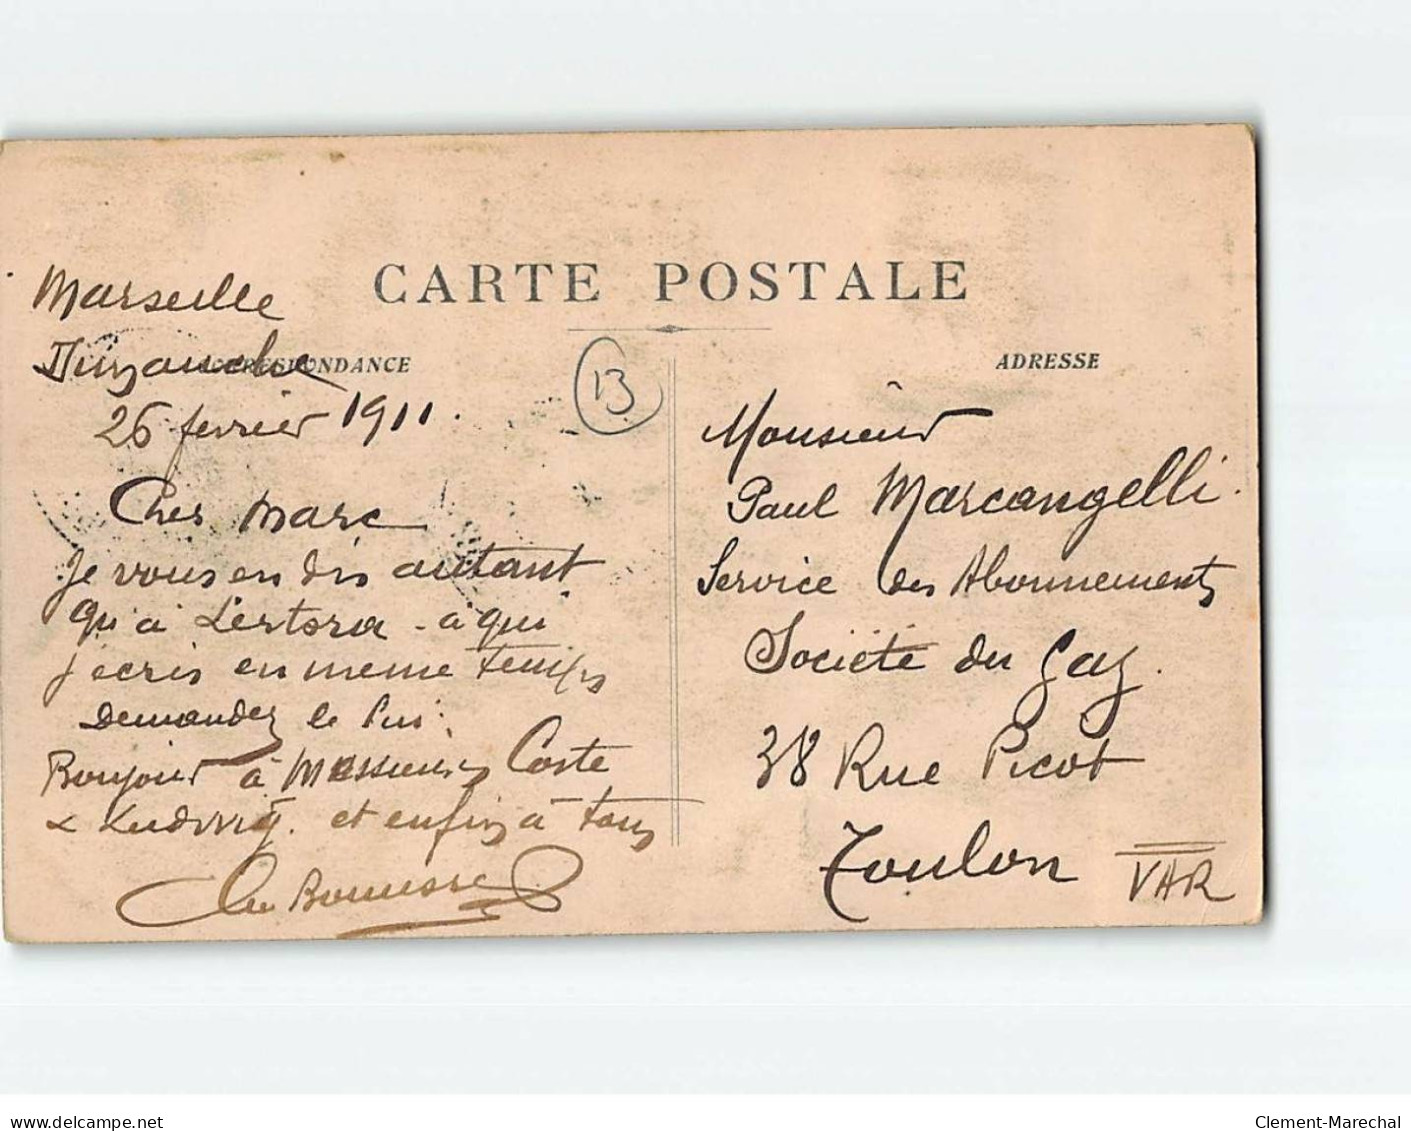 CARTE POSTALE
CORRESPONDANCE
ADRESSE
13
Marseille
Dimanche
26 fevrier 1911.
Cher Marc
Je vous en dis autant
qu'à Lestora - à qui
j'écris en meme temps
Demandez le lui.
Bonjour à Messieurs Coste
& Ludvvig. et enfin à tous
Monsieur
Paul Marcangelli.
Service des Abonnements
Société du Gaz.
38 Rue Picot
Toulon
VAR
www.delcampe.net
Clement-Marechal